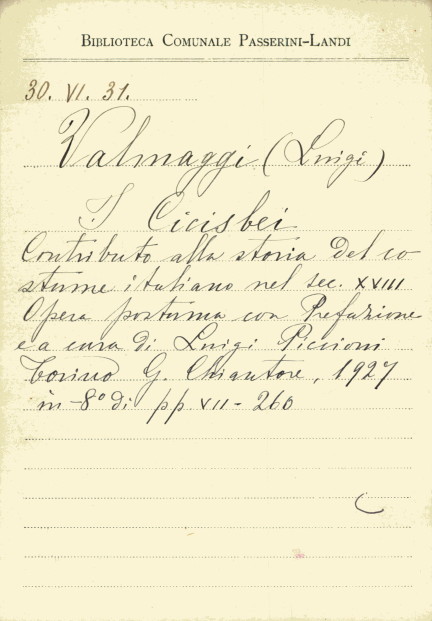 BIBLIOTECA COMUNALE PASSERINI-LANDI
30. VI. 31.
Valmaggi (Luigi)
I Cicisbei
Contributo alla storia del co
stume italiano nel sec. XVIII
Opera postuma con Prefazione
e a cura di Luigi Piccioni
Torino G. Chiantore, 1927
in-8º di pp VII-260